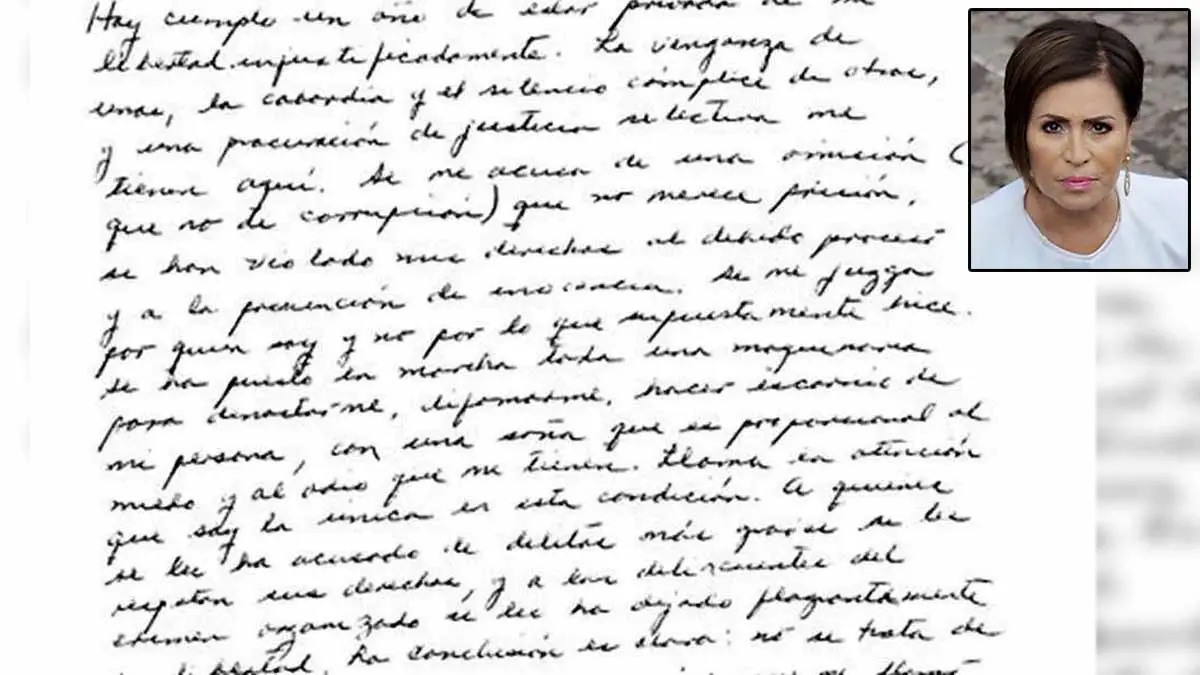 Hoy cumplo un año de estar privada de mi
libertad injustificadamente. La venganza de
unos, la cobardía y el silencio cómplice de otros,
y una procuración de justicia selectiva me
tienen aquí. Se me acusa de una omisión (
que no de corrupción) que no merece prisión,
se han violado mis derechos al debido proceso
y a la presunción de inocencia. Se me juzga
por quien soy y no por lo que supuestamente hice.
Se ha puesto en marcha toda una maquinaria
para denostarme, difamarme, hacer escarnio de
mi persona, con una saña que es proporcional al
miedo y al odio que me tienen. Llama la atención
que soy la única en esta condición. A quienes
se les ha acusado de delitos más graves se les
respetan sus derechos, y a los delincuentes del
crimen organizado se les ha dejado flagrantemente
libertad. La conclusión es clara: no se trata de